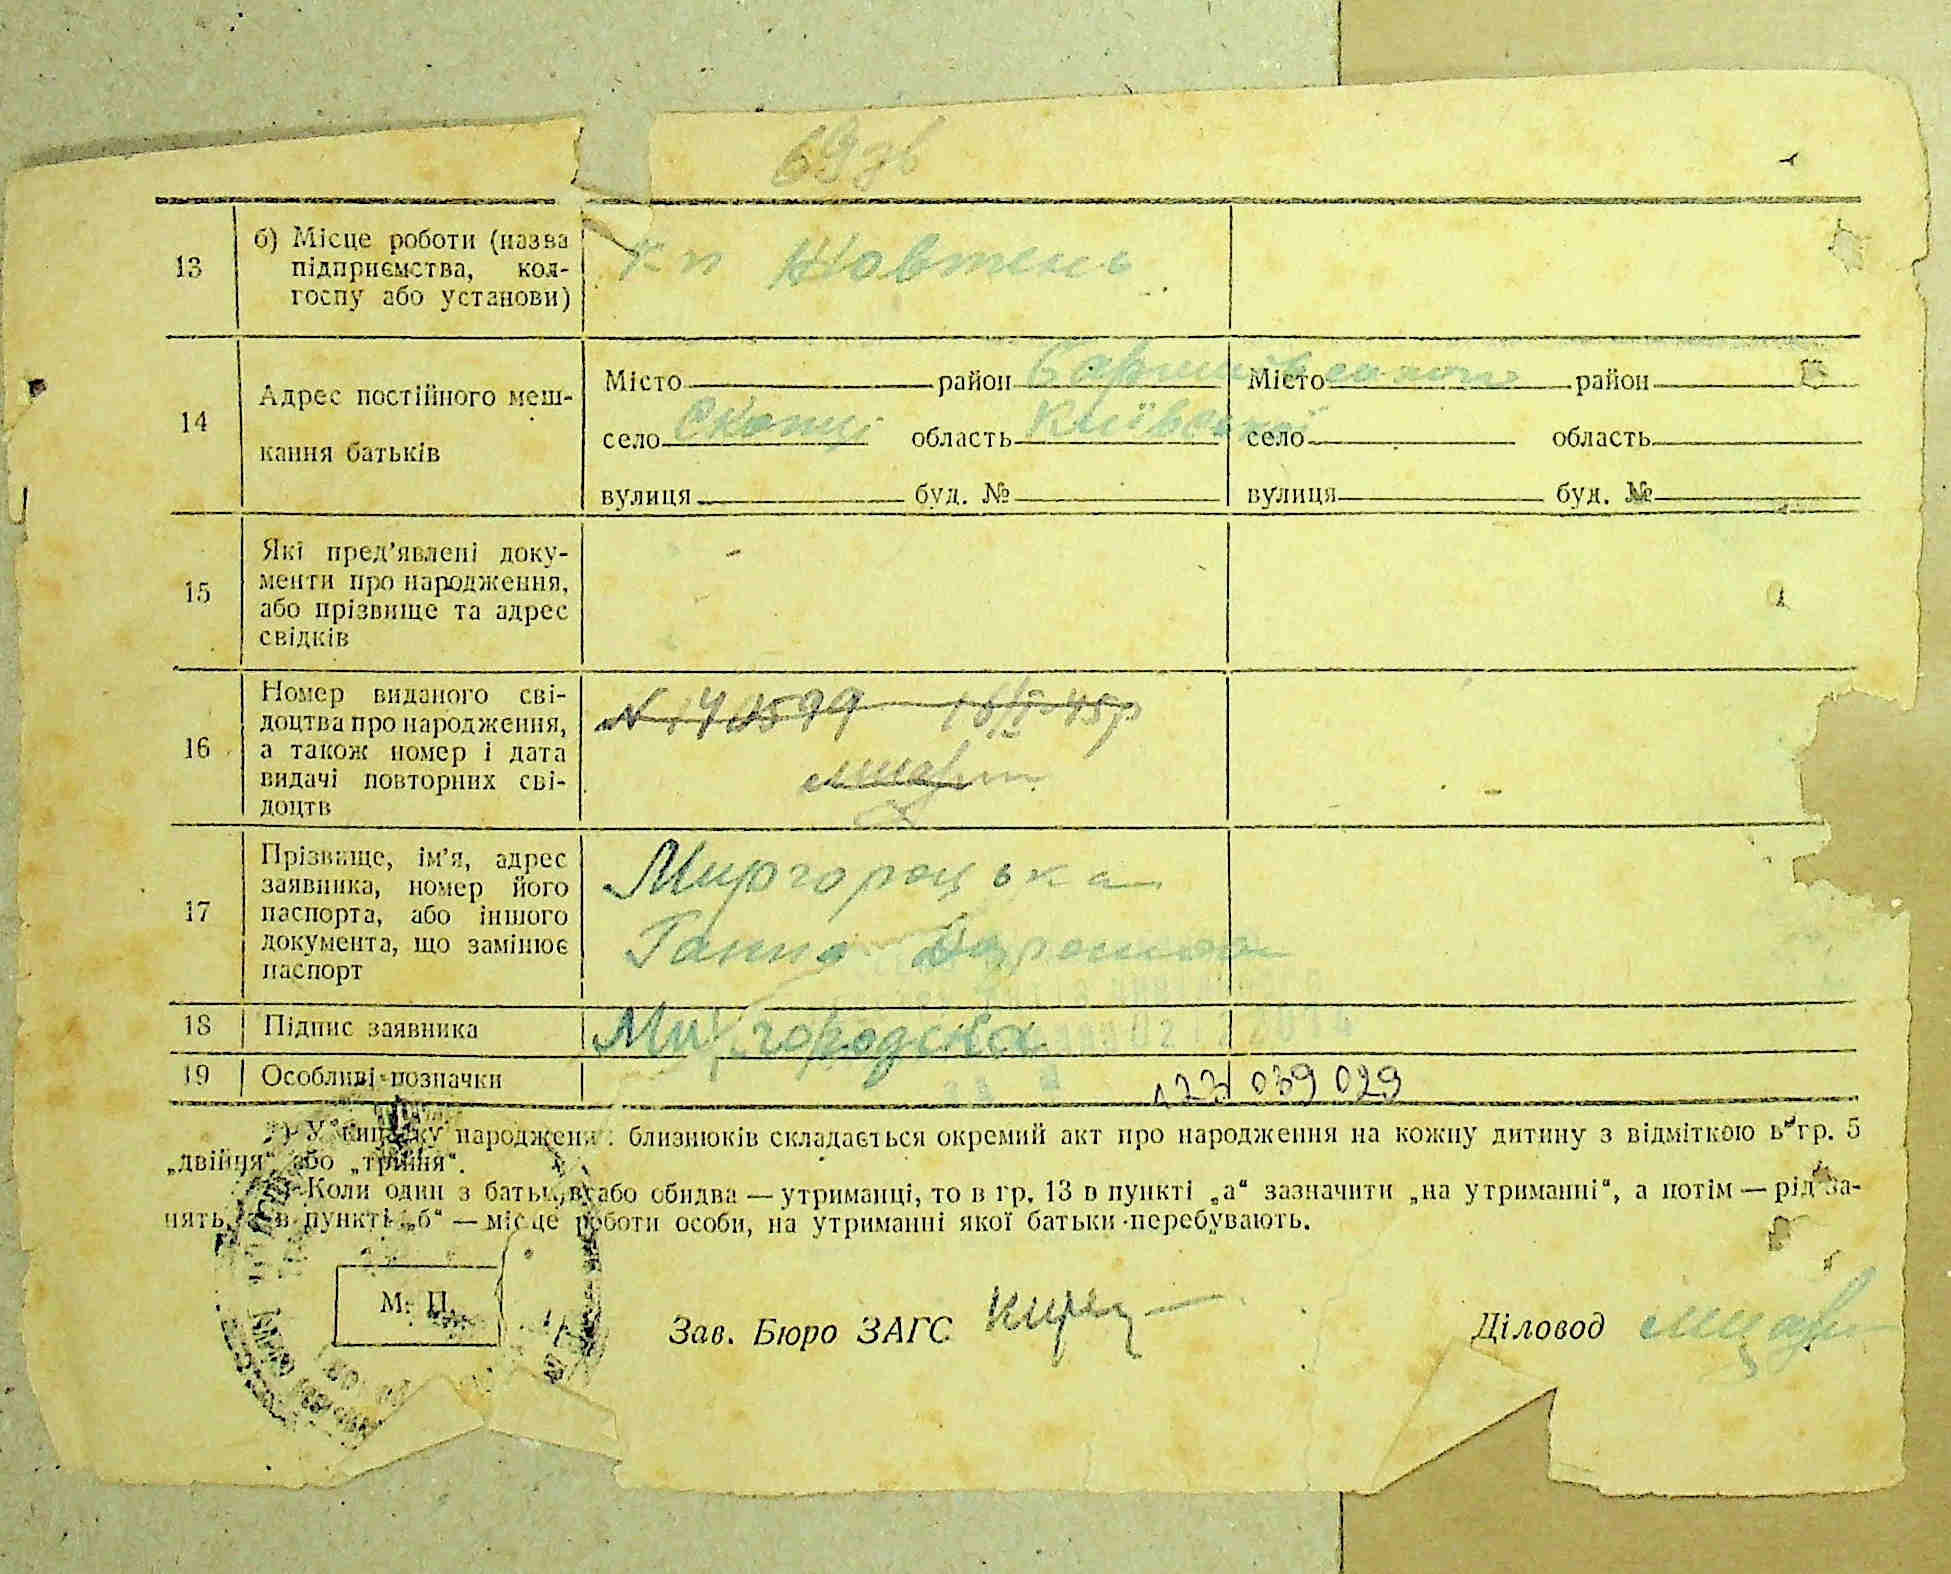 69 зв
13
б) Місце роботи (назва
підприємства, кол-
госпу або установи)
к п Жовтень
14
Адрес постійного меш-
кання батьків
Місто район Місто район
село Скопці область Київської село область
вулиця буд. № вулиця буд. №
15
Які пред’явлені доку-
менти про народження,
або прізвище та адрес
свідків
16
Номер виданого сві-
доцтва про народження,
а також номер і дата
видачі повторних сві-
доцтв
17
Прізвище, ім’я, адрес
заявника, номер його
паспорта, або іншого
документа, що замінює
паспорт
Миргородська
Ганна
18 Підпис заявника Миргородска
19 Особливі позначки 123 039 029
У випадку народження близнюків складається окремий акт про народження на кожну дитину з відміткою в гр. 5
„двійня“ або „трійня“.
Коли один з батьків або обидва — утриманці, то в гр. 13 в пункті „а“ зазначити „на утриманні“, а потім — рід за-
нять, а в пункті „б“ — місце роботи особи, на утриманні якої батьки перебувають.
М. П.
Зав. Бюро ЗАГС
Діловод